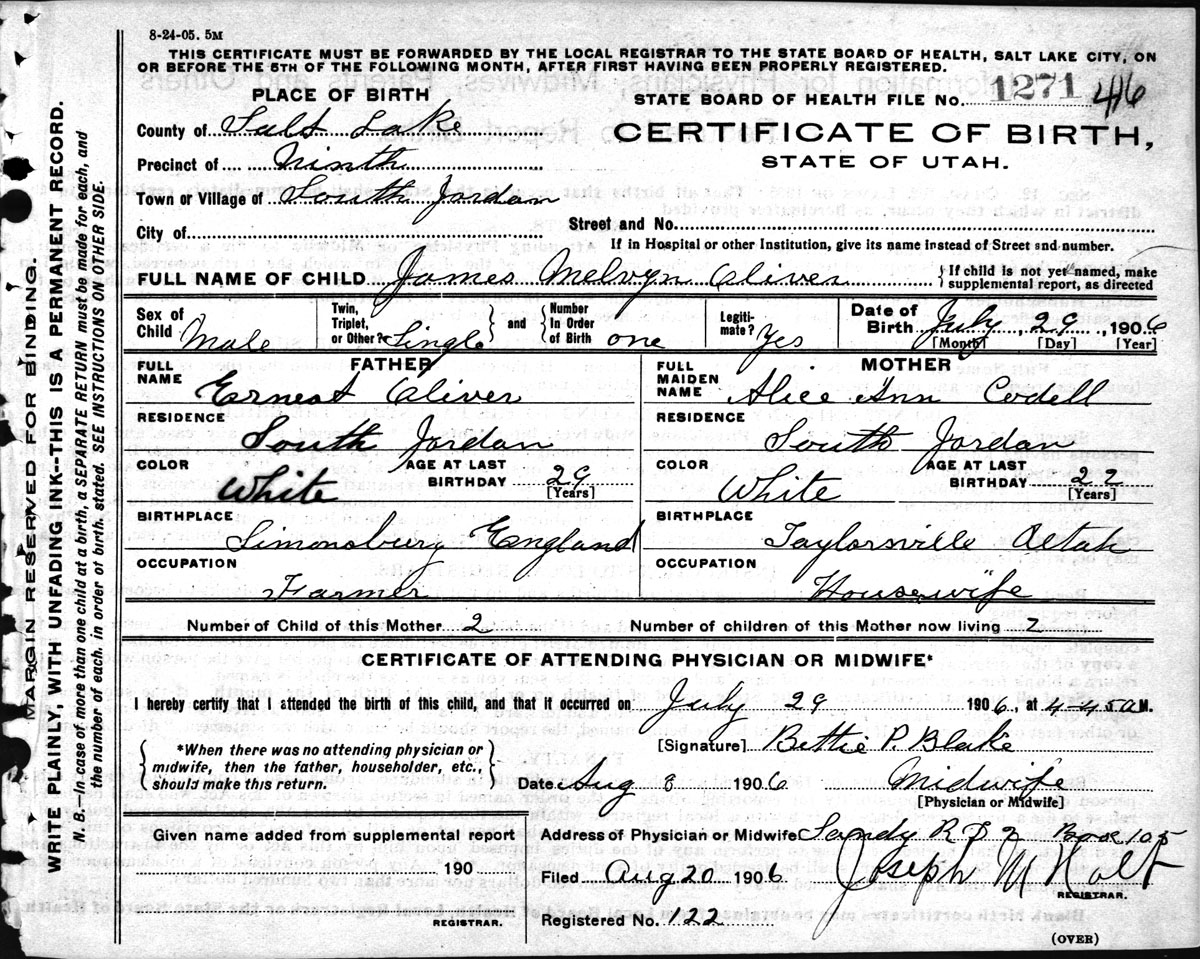 8-24-05. 5M
THIS CERTIFICATE MUST BE FORWARDED BY THE LOCAL REGISTRAR TO THE STATE BOARD OF HEALTH, SALT LAKE CITY, ON
OR BEFORE THE 5TH OF THE FOLLOWING MONTH, AFTER FIRST HAVING BEEN PROPERLY REGISTERED.
PLACE OF BIRTH
STATE BOARD OF HEALTH FILE NO. 1271 416
County of Salt Lake
CERTIFICATE OF BIRTH,
Precinct of Ninth
STATE OF UTAH.
Town or Village of South Jordan
City of
Street and No.
If in Hospital or other Institution, give its name instead of Street and number.
FULL NAME OF CHILD James Melvyn Oliver
{If child is not yet named, make
supplemental report, as directed
Sex of Child Male
Twin, Triplet, or Other? Single
and
Number In Order of Birth one
Legiti-mate? Yes
Date of Birth July 29, 1906
[Month] [Day] [Year]
FATHER
FULL NAME Ernest Oliver
RESIDENCE South Jordan
COLOR White
AGE AT LAST BIRTHDAY 29
[Years]
BIRTHPLACE Simonsbury England
OCCUPATION Farmer
MOTHER
FULL MAIDEN NAME Alice Ann
RESIDENCE South Jordan
COLOR White
AGE AT LAST BIRTHDAY 22
[Years]
BIRTHPLACE Taylorsville Utah
OCCUPATION Housewife
Number of Child of this Mother 2
Number of children of this Mother now living 2
CERTIFICATE OF ATTENDING PHYSICIAN OR MIDWIFE*
I hereby certify that I attended the birth of this child, and that it occurred on July 29 1906, at 4-45 A M.
{*When there was no attending physician or
midwife, then the father, householder, etc.,
should make this return.}
[Signature] Bettie P. Blake
Date Aug 8 1906
Midwife
[Physician or Midwife]
Given name added from supplemental report
190
REGISTRAR.
Address of Physician or Midwife Sandy R F D 2 Box 105
Filed Aug 20 1906
Joseph M Holt
REGISTRAR.
Registered No. 122
(OVER)
MARGIN RESERVED FOR BINDING.
WRITE PLAINLY, WITH UNFADING INK--THIS IS A PERMANENT RECORD.
N. B.—In case of more than one child at a birth, a SEPARATE RETURN must be made for each, and
the number of each, in order of birth, stated. SEE INSTRUCTIONS ON OTHER SIDE.